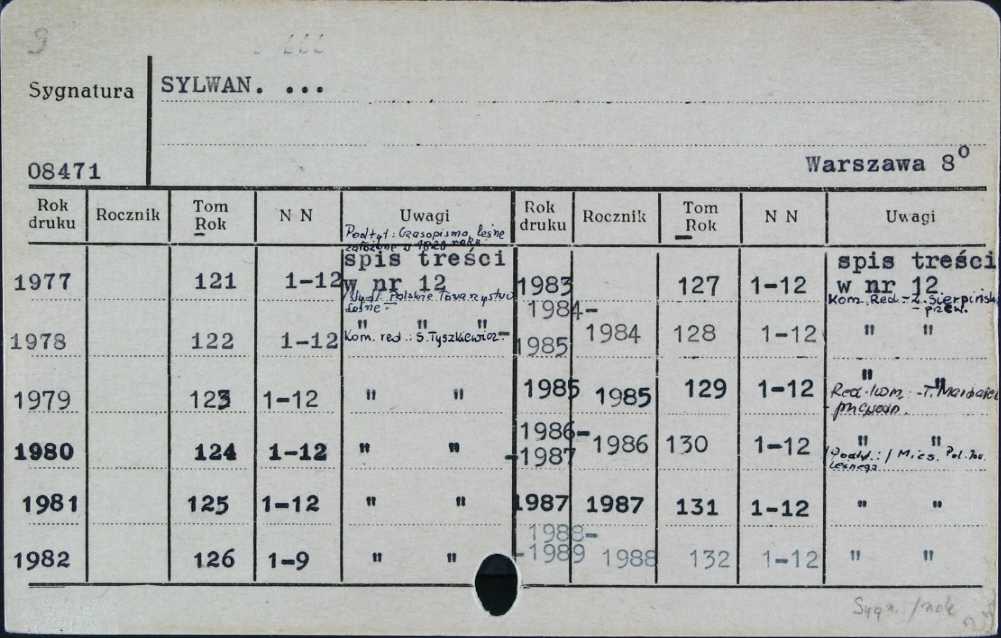 9
Sygnatura SYLWAN. ...
08471 Warszawa 8°
Rok druku Rocznik Tom Rok N N Uwagi Rok druku Rocznik Tom Rok N N Uwagi
Podtyt.: Czasopismo leśne
założone w 1820 roku
1977 121 1-12 spis treści w nr 12 1983 127 1-12 spis treści w nr 12
Wyd. Polskie Towarzystwo Leśne.
Kom. Red. - Z. Sierpiński - przew.
1978 122 1-12 " " " 1984-1985 1984 128 1-12 " "
Kom. red.: S. Tyszkiewicz.
1979 123 1-12 " " 1985 1985 129 1-12 " "
Red. kom. - T.
1980 124 1-12 " " 1986-1987 1986 130 1-12 " "
1981 125 1-12 " " 1987 1987 131 1-12 " "
1982 126 1-9 " " 1988-1989 1988 132 1-12 " "
Sygn. / rok